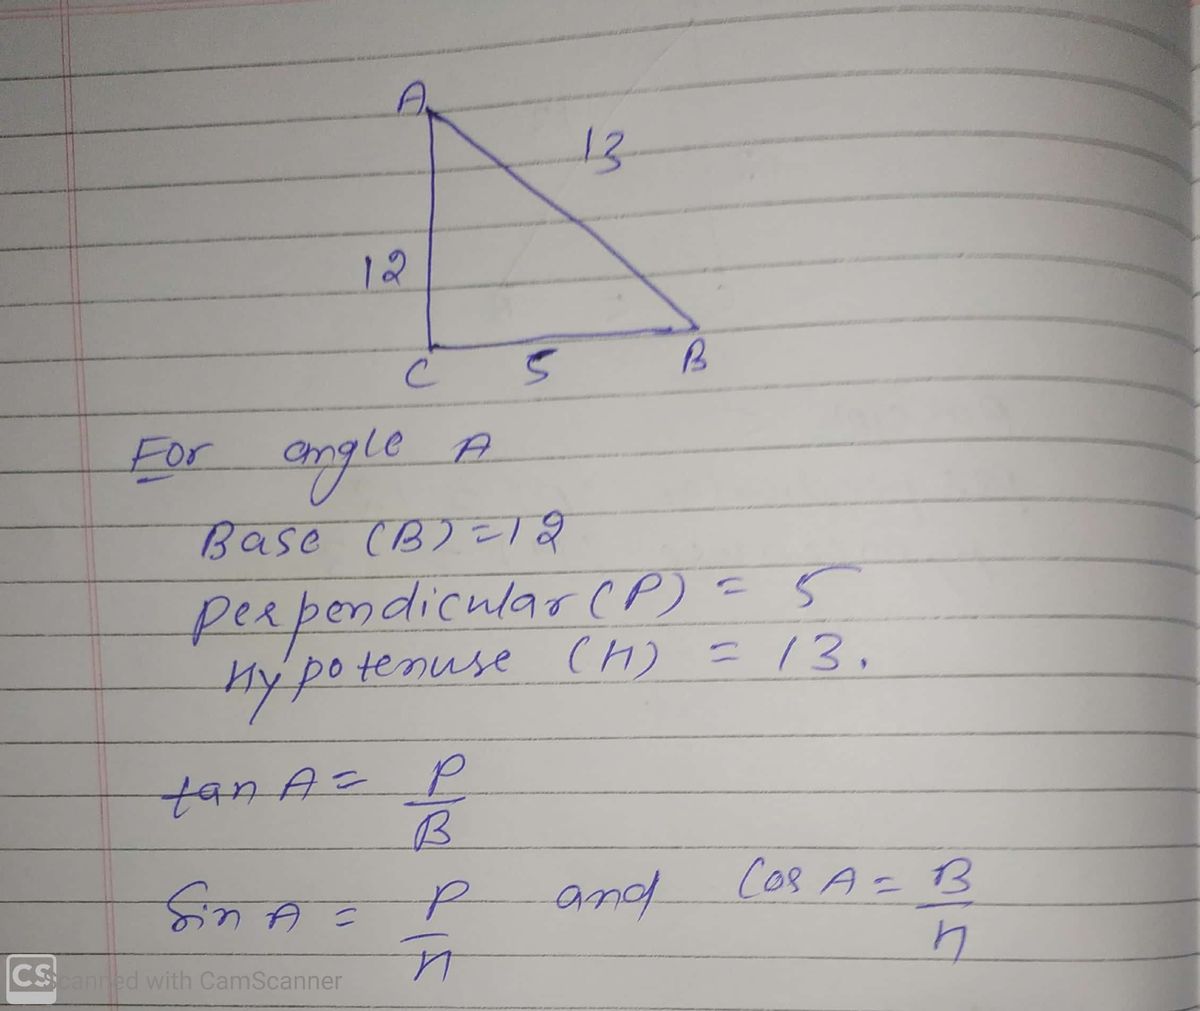 A
13
12
C 5 B
For angle A
Base (B) = 12
Perpendicular (P) = 5
Hypotenuse (H) = 13.
tan A = P/B
Sin A = P/H and Cos A = B/H
CS Scanned with CamScanner